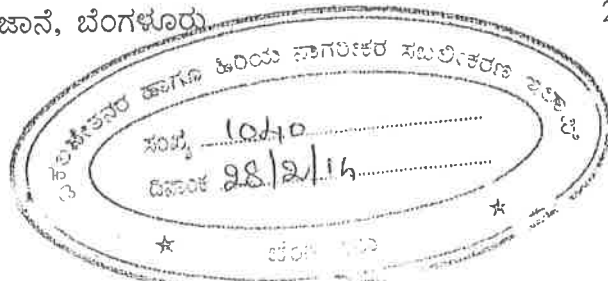 ಜಾನೆ, ಬೆಂಗಳೂರು
ವಿಕಲಚೇತನರ ಹಾಗೂ ಹಿರಿಯ ನಾಗರೀಕರ ಸಬಲೀಕರಣ ಇಲಾಖೆ
ಸಂಖ್ಯೆ 1040
ದಿನಾಂಕ 28/2/14